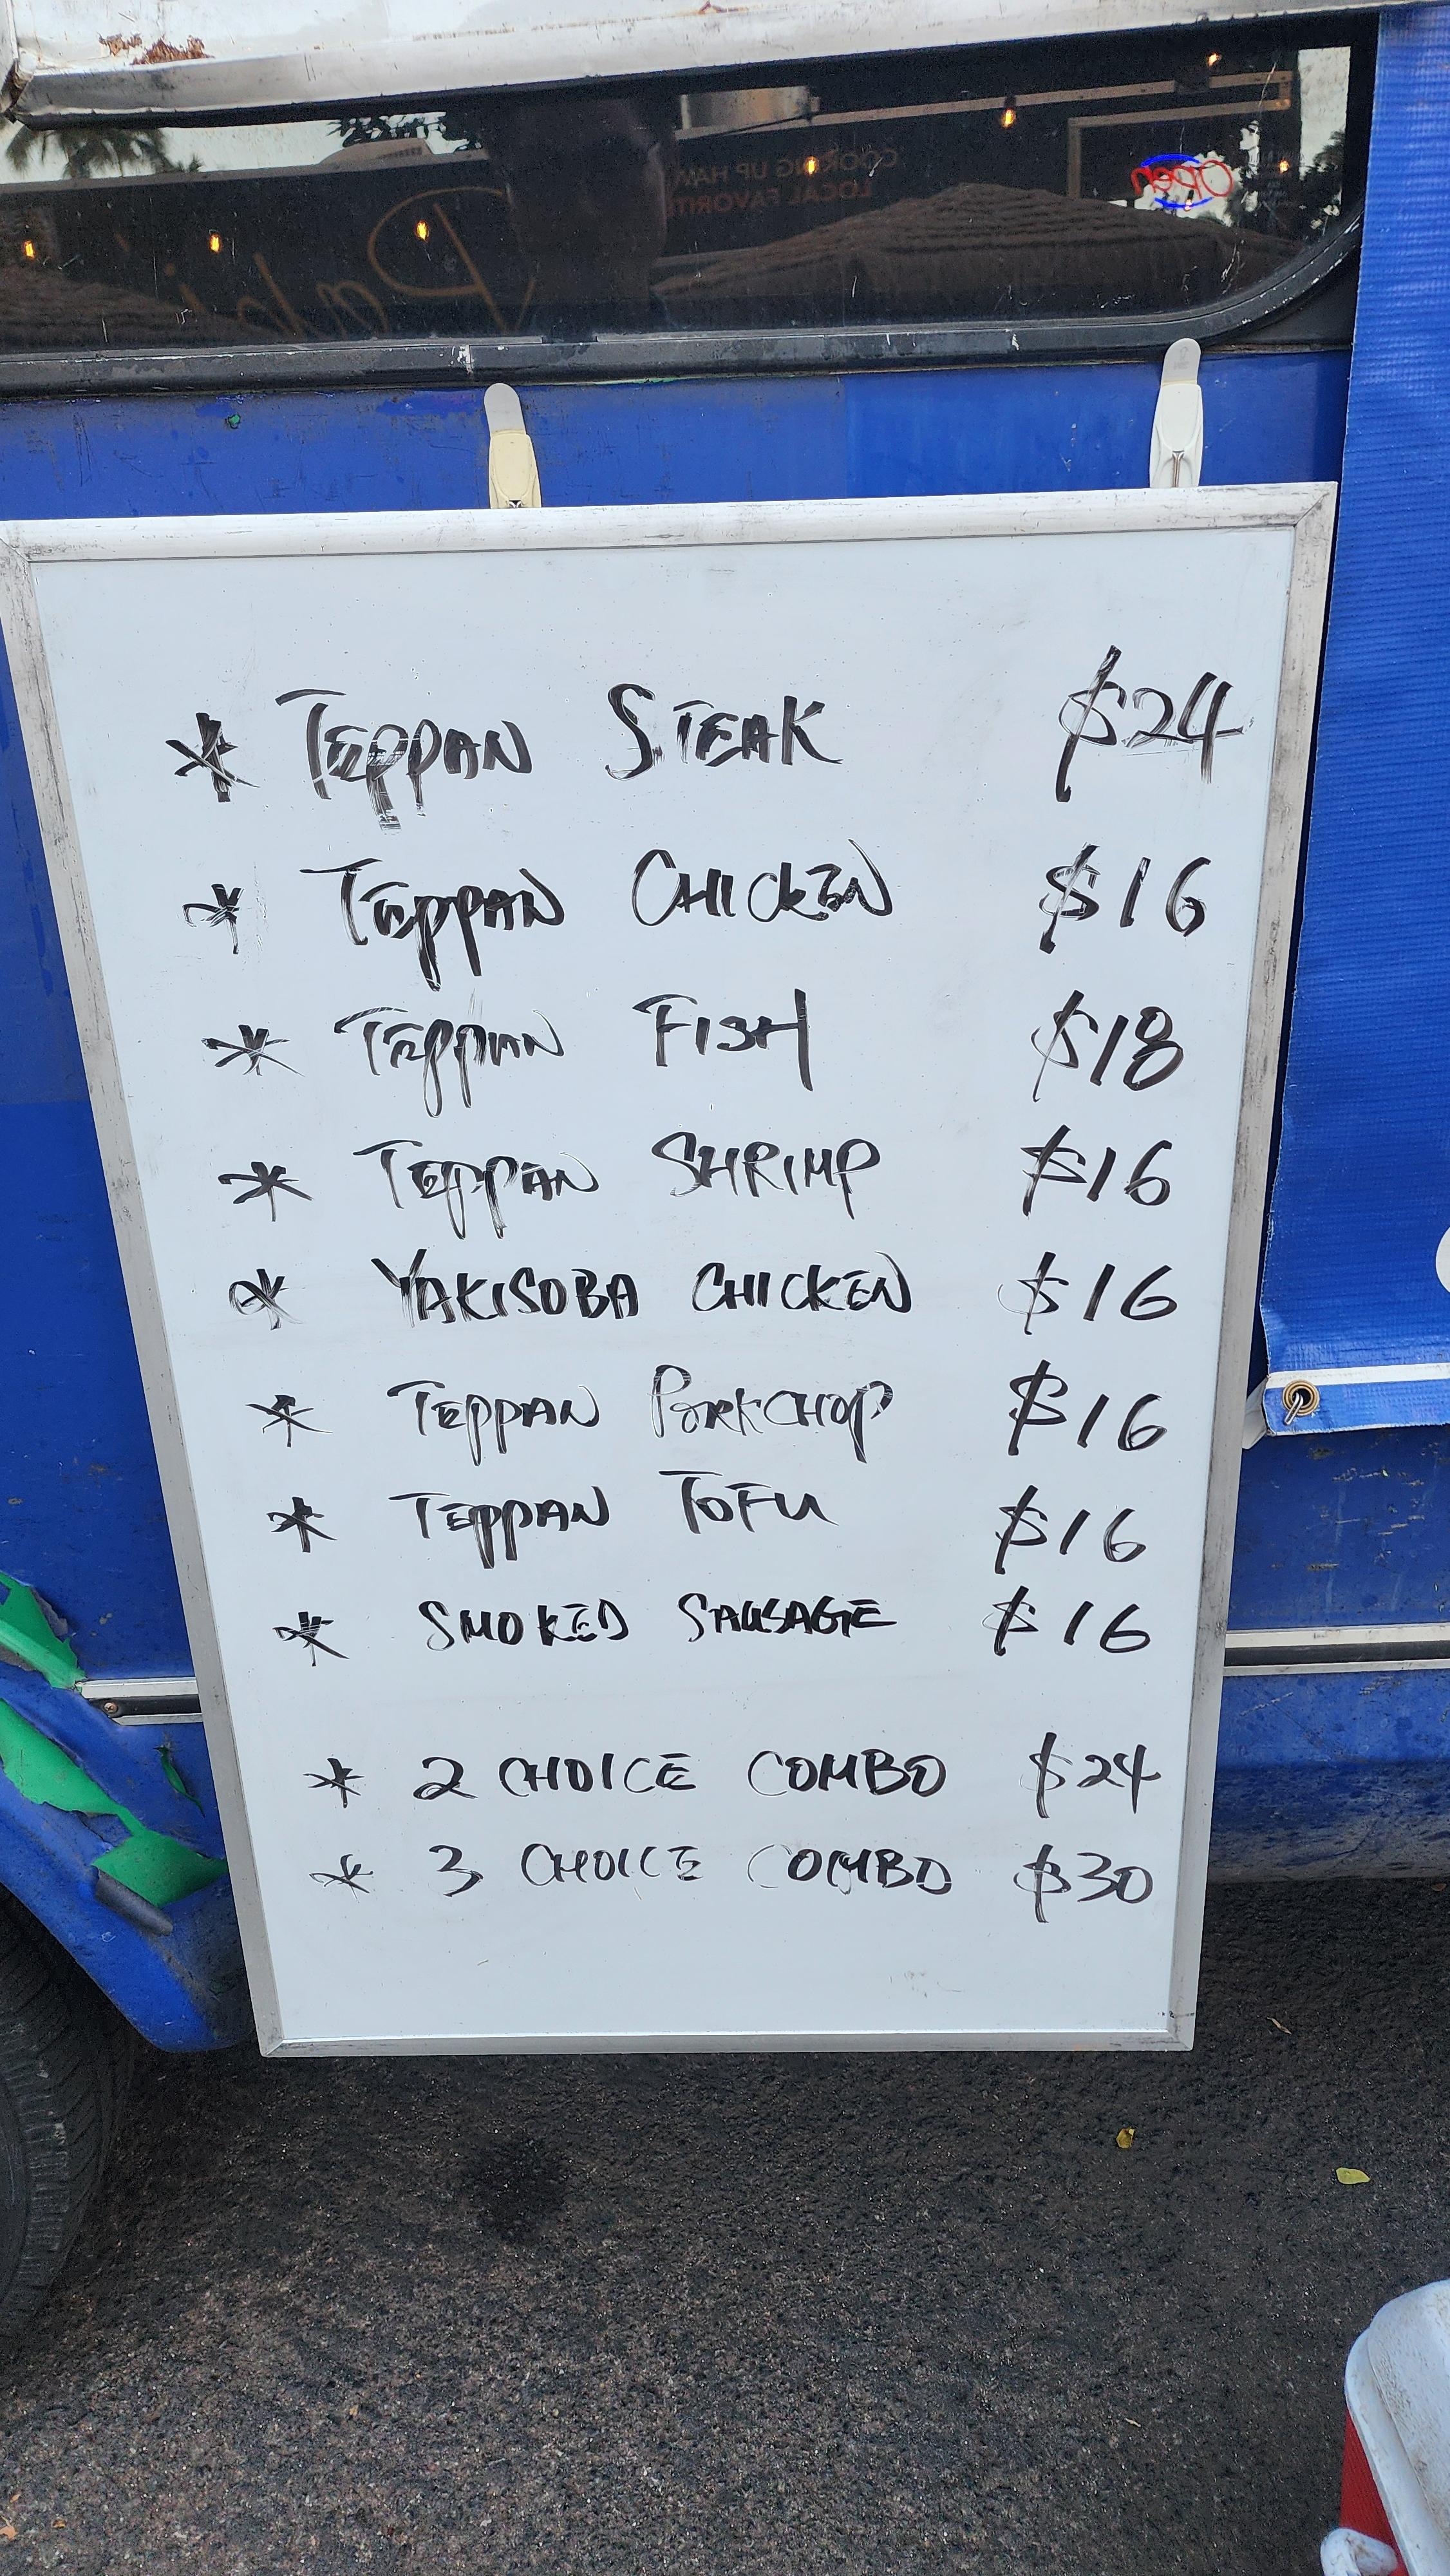 COOKING UP HAW
LOCAL FAVORIT
Open
* TEPPAN STEAK $24
* TEPPAN CHICKEN $16
* TEPPAN FISH $18
* TEPPAN SHRIMP $16
* YAKISOBA CHICKEN $16
* TEPPAN PORKCHOP $16
* TEPPAN TOFU $16
* SMOKED SAUSAGE $16
* 2 CHOICE COMBO $24
* 3 CHOICE COMBO $30